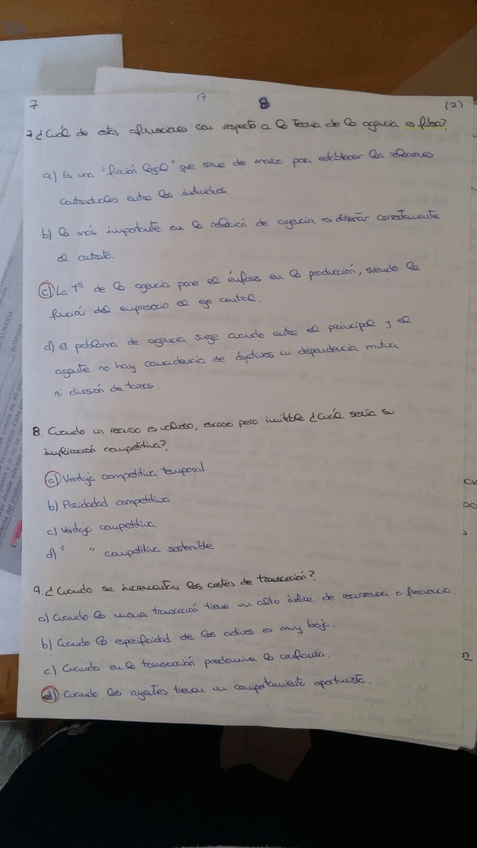 7 17 8 (2)
7 ¿Cuál de estas afirmaciones con respecto a la Teoría de la agencia es falsa?
a) Es una "ficción legal" que sirve de marco para establecer las relaciones
contractuales entre los individuos.
b) Lo más importante en la relación de agencia es diseñar correctamente
el contrato.
c) La Tª de la agencia pone el énfasis en la producción, siendo la
función del empresario el eje central.
d) El problema de agencia surge cuando entre el principal y el
agente no hay coincidencia de objetivos ni dependencia mutua
ni división de tareas.
8. Cuando un recurso es valioso, escaso pero imitable ¿Cuál sería su
implicación competitiva?
a) Ventaja competitiva temporal
b) Paridad competitiva.
c) Ventaja competitiva
d) " " competitiva sostenible
9. ¿Cuándo se incrementan los costes de transacción?
a) Cuando la misma transacción tiene un alto índice de recurrencia o frecuencia.
b) Cuando la especificidad de los activos es muy baja.
c) Cuando en la transacción predomina la confianza.
d) Cuando los agentes tienen un comportamiento oportunista.